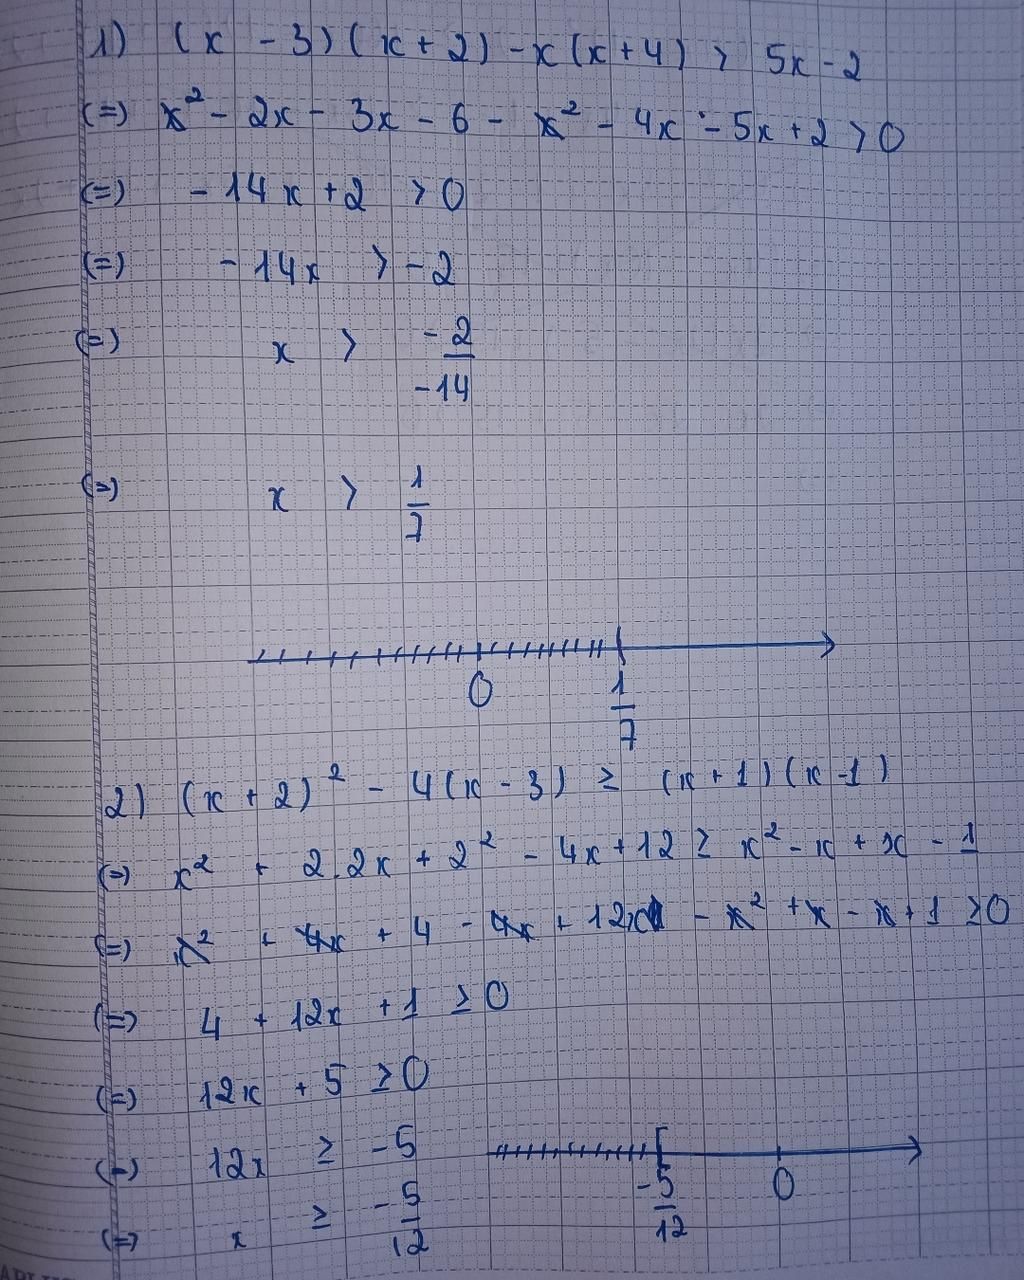 1) (x - 3)(x + 2) - x(x + 4) > 5x - 2
(=) x² - 2x - 3x - 6 - x² - 4x - 5x + 2 > 0
(=) - 14x + 2 > 0
(=) - 14x > - 2
(=) x > -2/-14
(=) x > 1/7
0 1/7
2) (x + 2)² - 4(x - 3) ≥ (x + 1)(x - 1)
(=) x² + 2.2x + 2² - 4x + 12 ≥ x² - x + x - 1
(=) x² + 4x + 4 - 4x + 12x - x² + x - x + 1 ≥ 0
(=) 4 + 12x + 1 ≥ 0
(=) 12x + 5 ≥ 0
(=) 12x ≥ - 5
(=) x ≥ -5/12
-5/12 0